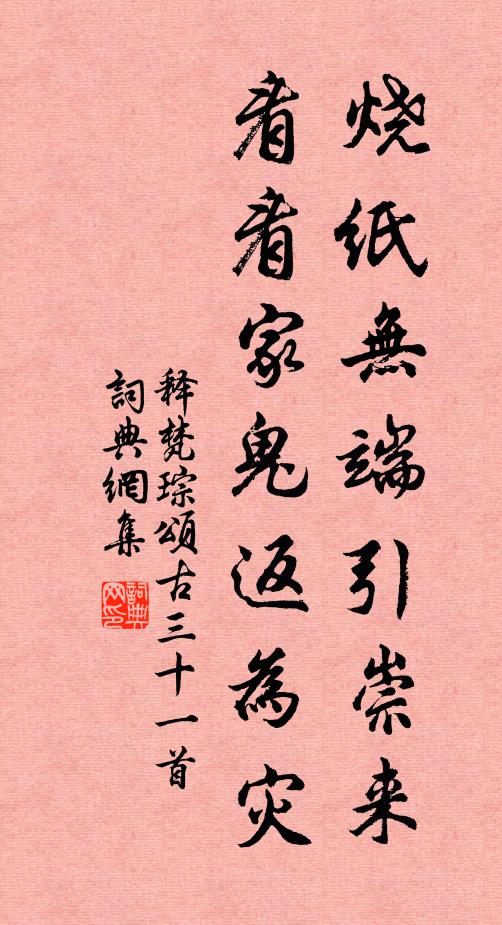 烧纸無端引崇来
看看家鬼返為灾
释梵琮頌古三十一首
詞典網集
詞典网印